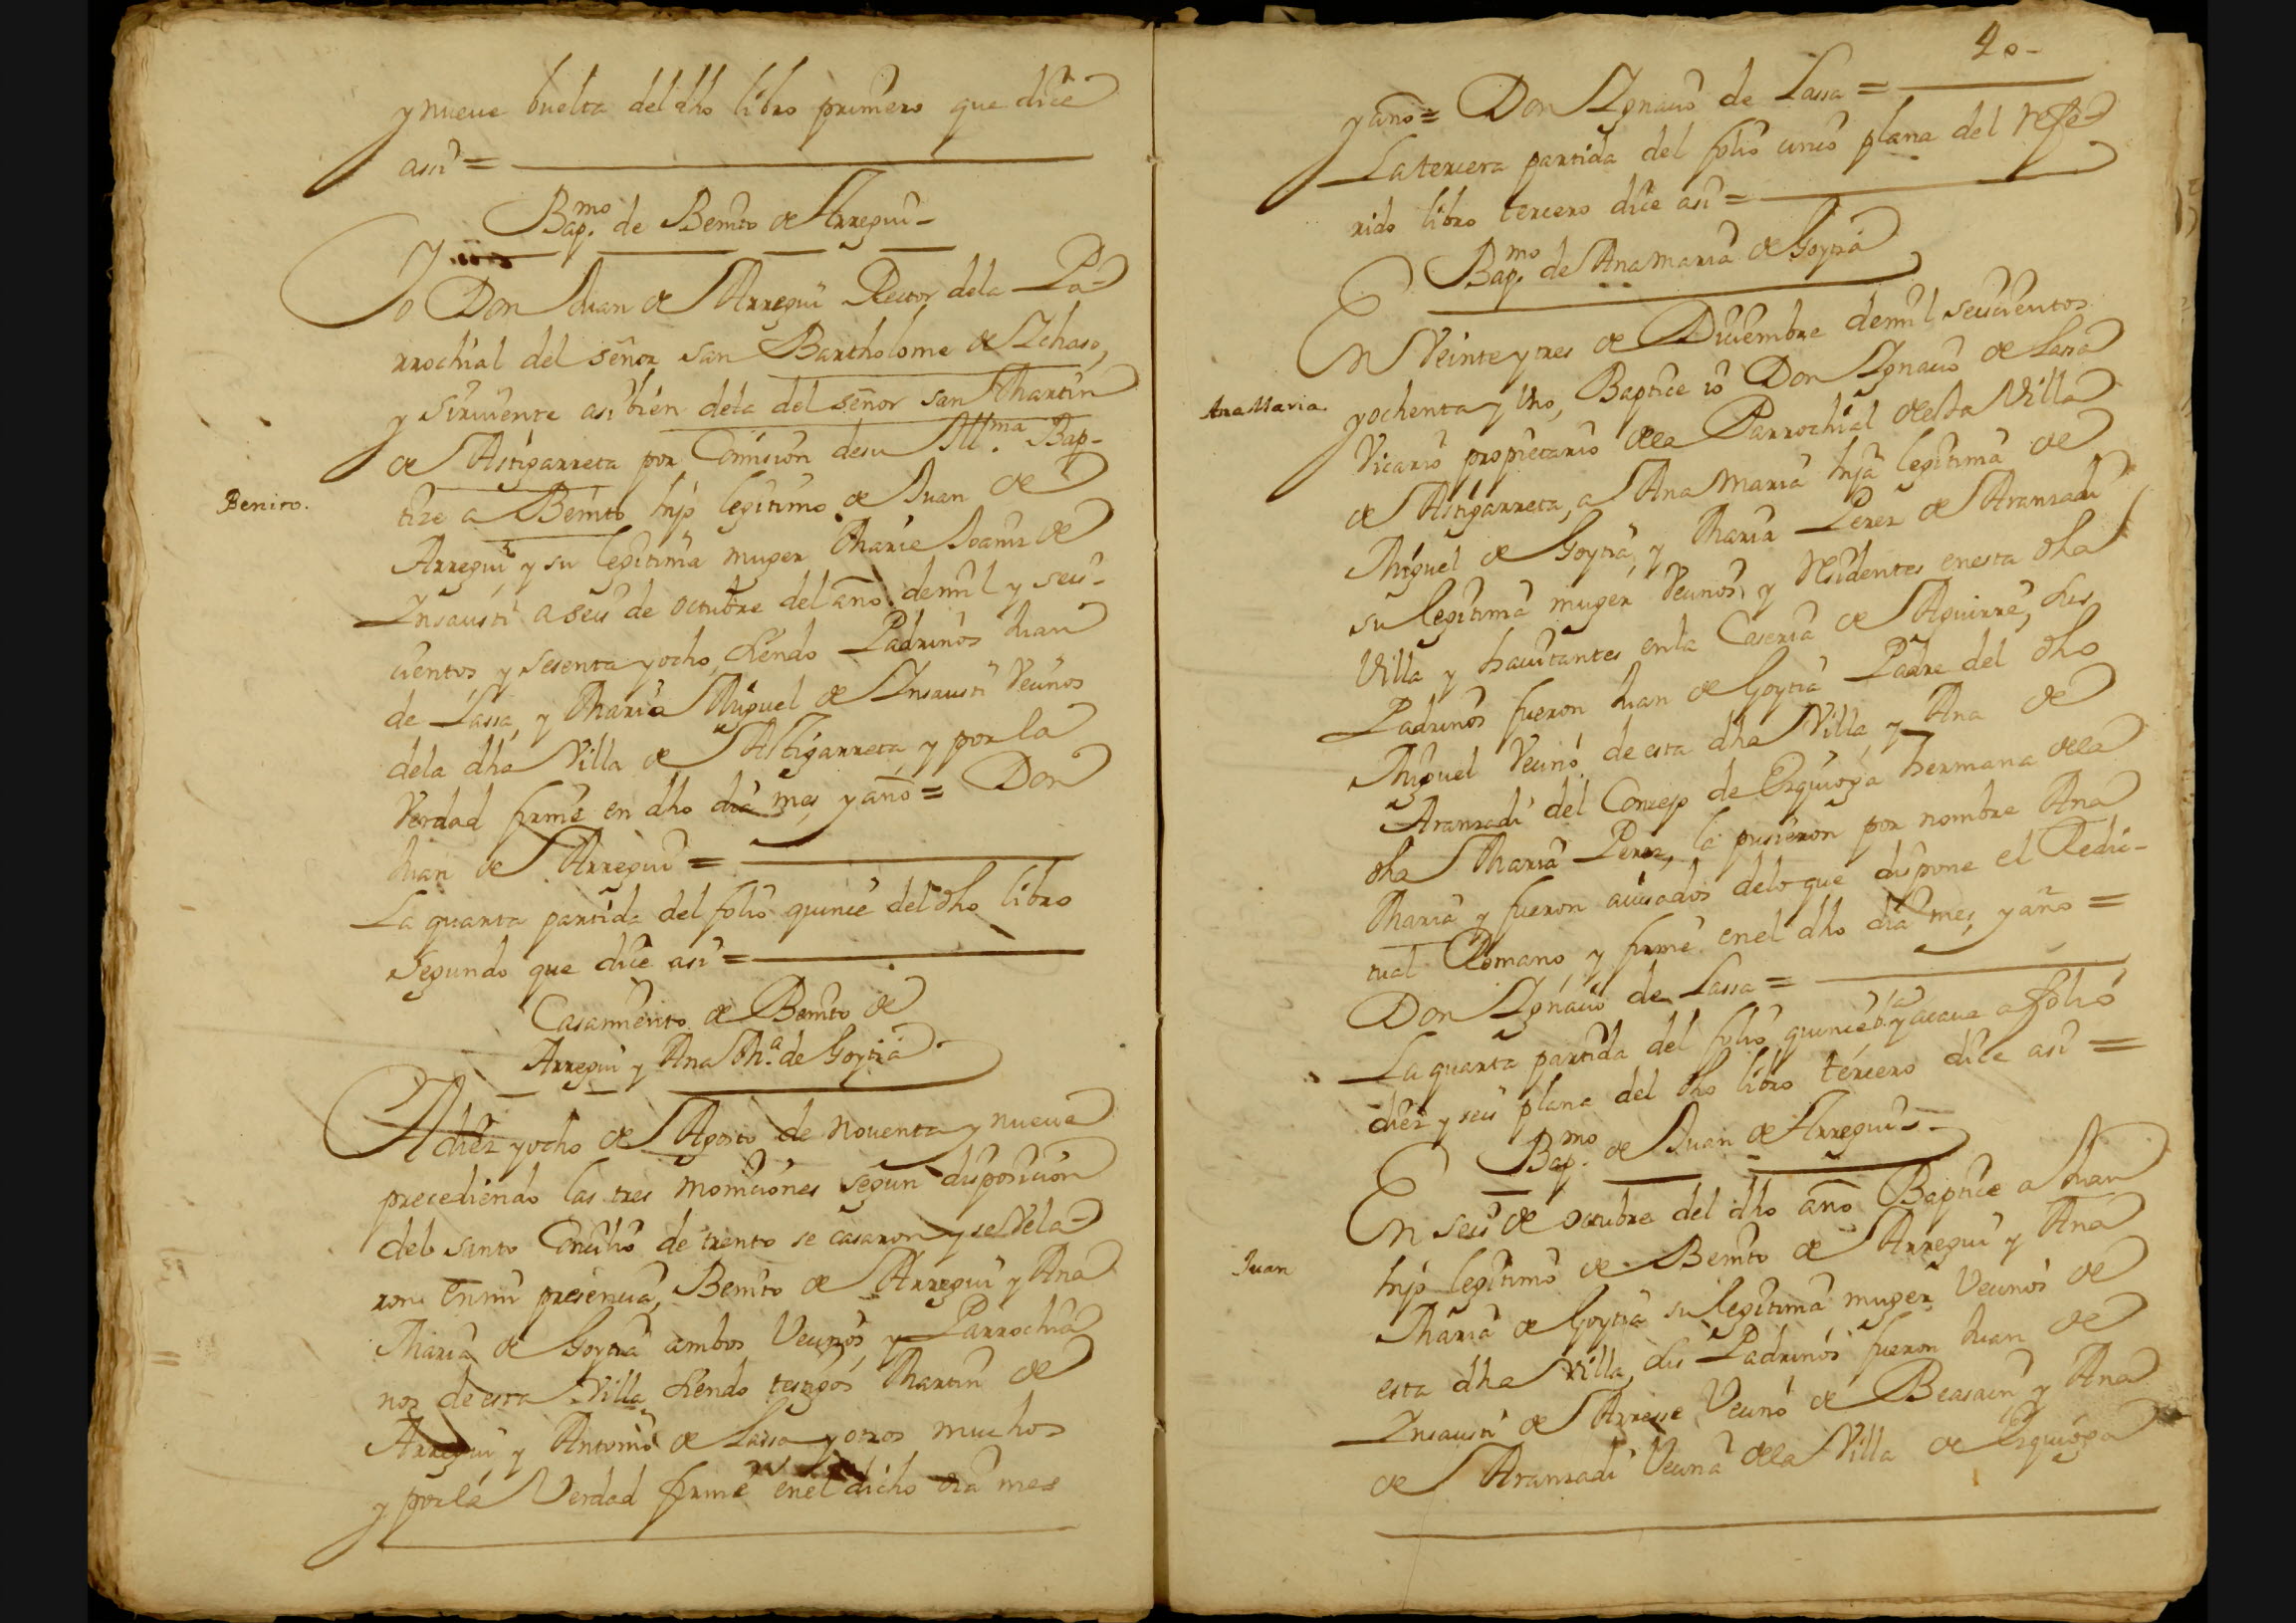 y nueve buelta del dho libro primero que dice
asi =
Bap.mo de Benito de Arregui -
Yo Don Juan de Arregui Rector dela Pa-
rrochial del señor san Bartholome de Ichaso,
y sirviente asi bien dela del señor san Martin
de Astigarreta por Comision de su Ill.ma Bap-
Benito.
tize a Benito hijo legitimo de Juan de
Arregui y su legitima muger Maria Joaniz de
Insausti a seis de octubre del año de mil y seis-
cientos y sesenta y ocho, siendo Padrinos Juan
de Lassa, y Maria Miguel de Insausti Vecinos
dela dha Villa de Astigarreta, y por la
Verdad firme en dho dia mes, y año = Don
Juan de Arregui =
La quarta partida del folio quince del dho libro
segundo que dice asi =
Casamiento de Benito de
Arregui y Ana M.a de Goytia.
A diez y ocho de Agosto de noventa y nueve
precediendo las tres moniciones segun disposicion
del santo Concilio de trento se casaron y se Vela-
ron en mi presencia, Benito de Arregui y Ana
Maria de Goytia ambos Vecinos, y Parrochia
nos de esta Villa, siendo testigos Martin de
Arregui y Antonio de Lassa y otros muchos
y por la Verdad firme en el dicho dia mes
40-
y año = Don Ignacio de Lassa =
La tercera partida del folio cinco plana del refe-
rido libro tercero dice asi =
Bap.mo de Ana Maria de Goytia
En Veinte y tres de Diciembre de mil seiscientos
Ana Maria.
y ochenta y Vno, Baptice io Don Ignacio de Lassa
Vicario propietario dela Parrochial desta Villa
de Astigarreta, a Ana Maria hija legitima de
Miguel de Goytia, y Maria Perez de Aranzadi
su legitima muger Vecinos, y Residentes en esta dha
Villa y havitantes en la Caseria de Aguirre, sus
Padrinos fueron Juan de Goytia Padre del dho
Miguel Vecino de esta dha Villa y Ana de
Aranzadi del Concejo de Ezquioga hermana dela
dha Maria Perez, la pusieron por nombre Ana
Maria y fueron avisados delo que dispone el Redi-
tual Romano, y firme en el dho dia mes, y año =
Don Ignacio de Lassa =
La quarta partida del folio quince b.ta y acava a folio
diez y seis plana del dho libro tercero dice asi =
Bap.mo de Juan de Arregui -
En seis de octubre del dho año Baptice a Juan
Juan
hijo legitimo de Benito de Arregui y Ana
Maria de Goytia su legitima muger, Vecinos de
esta dha Villa, sus Padrinos fueron Juan de
Insausti de Arresse Vecino de Beasain, y Ana
de Aranzadi Vecina dela Villa de Ezquioga